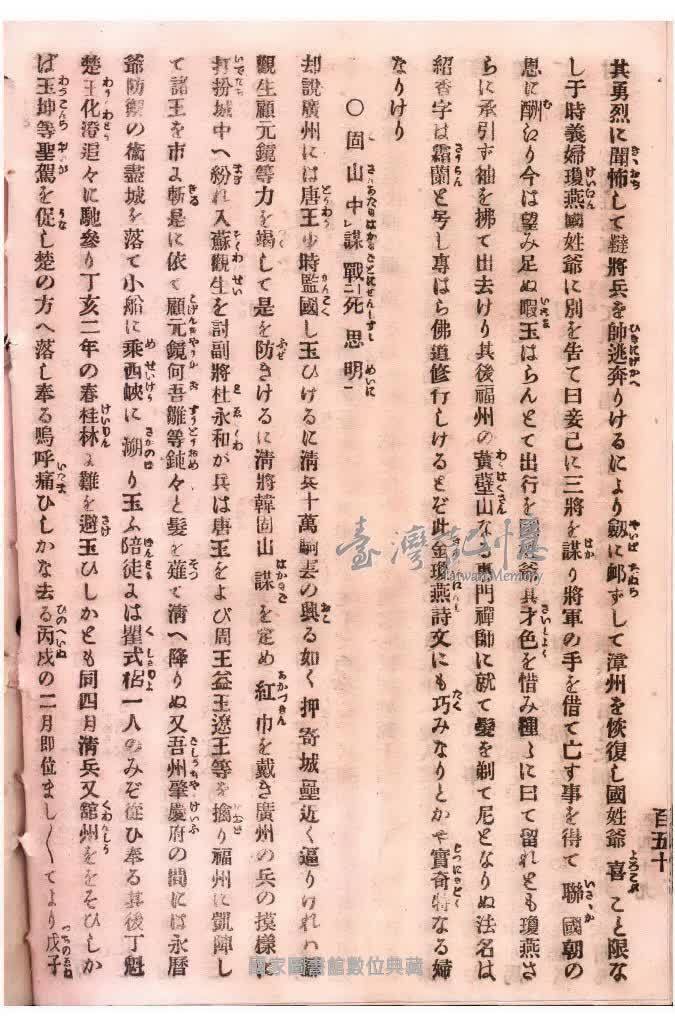 其勇烈に聞怖して韃將兵を帥逃奔りけるにより劔に衂ずして漳州を恢復し國姓爺喜こと限な
し于時義婦瓊燕國姓爺に別を告て曰妾已に三將を謀り將軍の手を借て亡す事を得て聯國朝の
恩に酬ひり今は望み足ぬ暇玉はらんとて出行を國姓爺其才色を惜み種々に曰て留れとも瓊燕さ
らに承引ず袖を拂て出去けり其後福州の黃蘗山なる專門禪師に就て髮を剃て尼となりぬ法名は
紹香字は霜蘭と号し專はら佛道修行しけるとぞ此金瓊燕詩文にも巧みなりとかや實奇特なる婦
なりけり
○固山中レ謀戰二死思明一
却說廣州には唐王少時監國し玉ひけるに清兵十萬騎雲の興る如く押寄城壘近く逼りけれハ蘇
觀生顧元鏡等力を竭して是を防きけるに清將韓固山謀を定め紅巾を戴き廣州の兵の摸樣に
打扮城中へ紛れ入蘇觀生を討副將杜永和が兵は唐王をよび周王益王遼王等を擒り福州に凱陣し
て諸王を市に斬是に依て顧元鏡何吾騶等鈍々と髮を薙て清へ降りぬ又吾州肇慶府の間には永曆
爺防禦の術盡城を落て小船に乘西峽に溯り玉ふ陪徒には瞿式耜一人のみぞ從ひ奉る其後丁魁
楚王化澄追々に馳參り丁亥二年の春桂林に難を避玉ひしかとも同四月清兵又韶州ををそひしか
ば玉坤等聖駕を促し楚の方へ落し奉る嗚呼痛ひしかな去る丙戌の二月即位ましゝてより戊子
百五十
臺灣記憶
Taiwan Memory
國家圖書館數位典藏